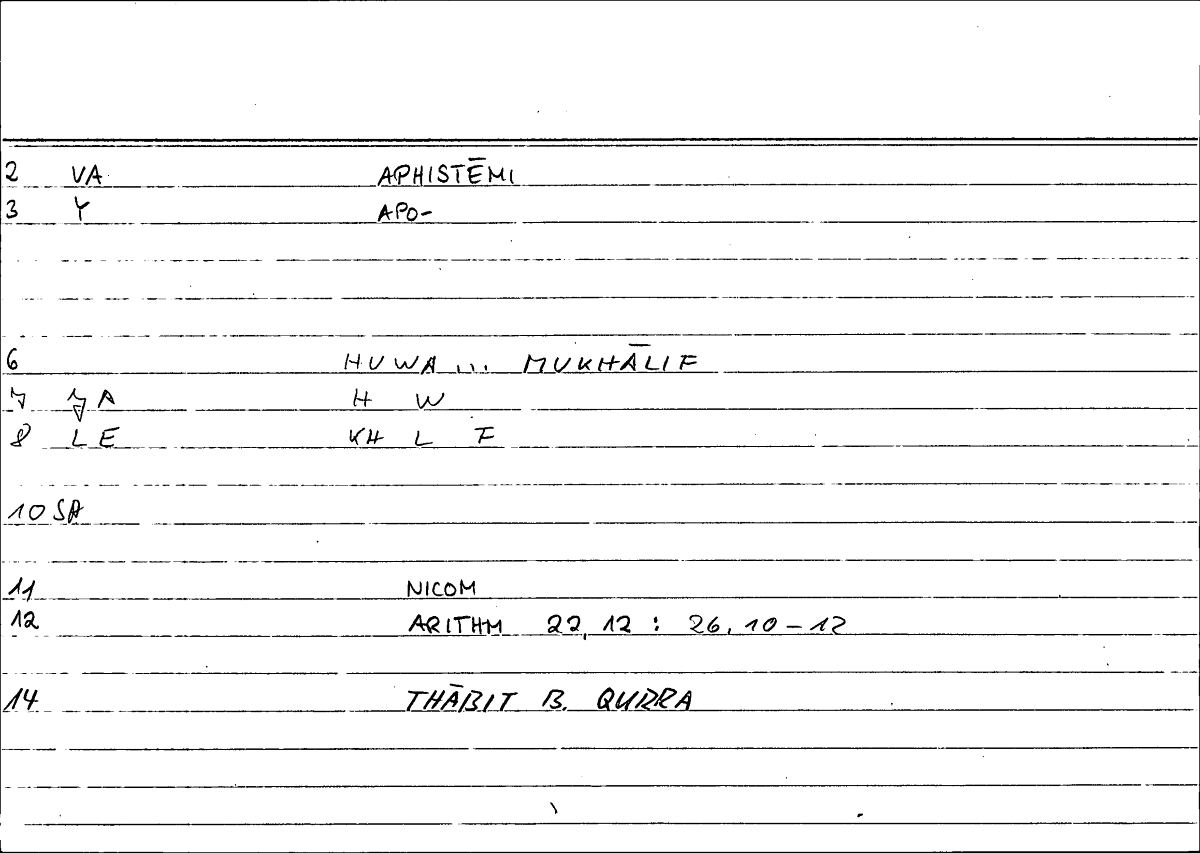 2 VA APHISTĒMI
3 Y APO-
6 HUWA ... MUKHĀLIF
7 A H W
8 LE KH L F
10 SA
11 NICOM
12 ARITHM 22, 12 : 26, 10-12
14 THĀBIT B. QURRA